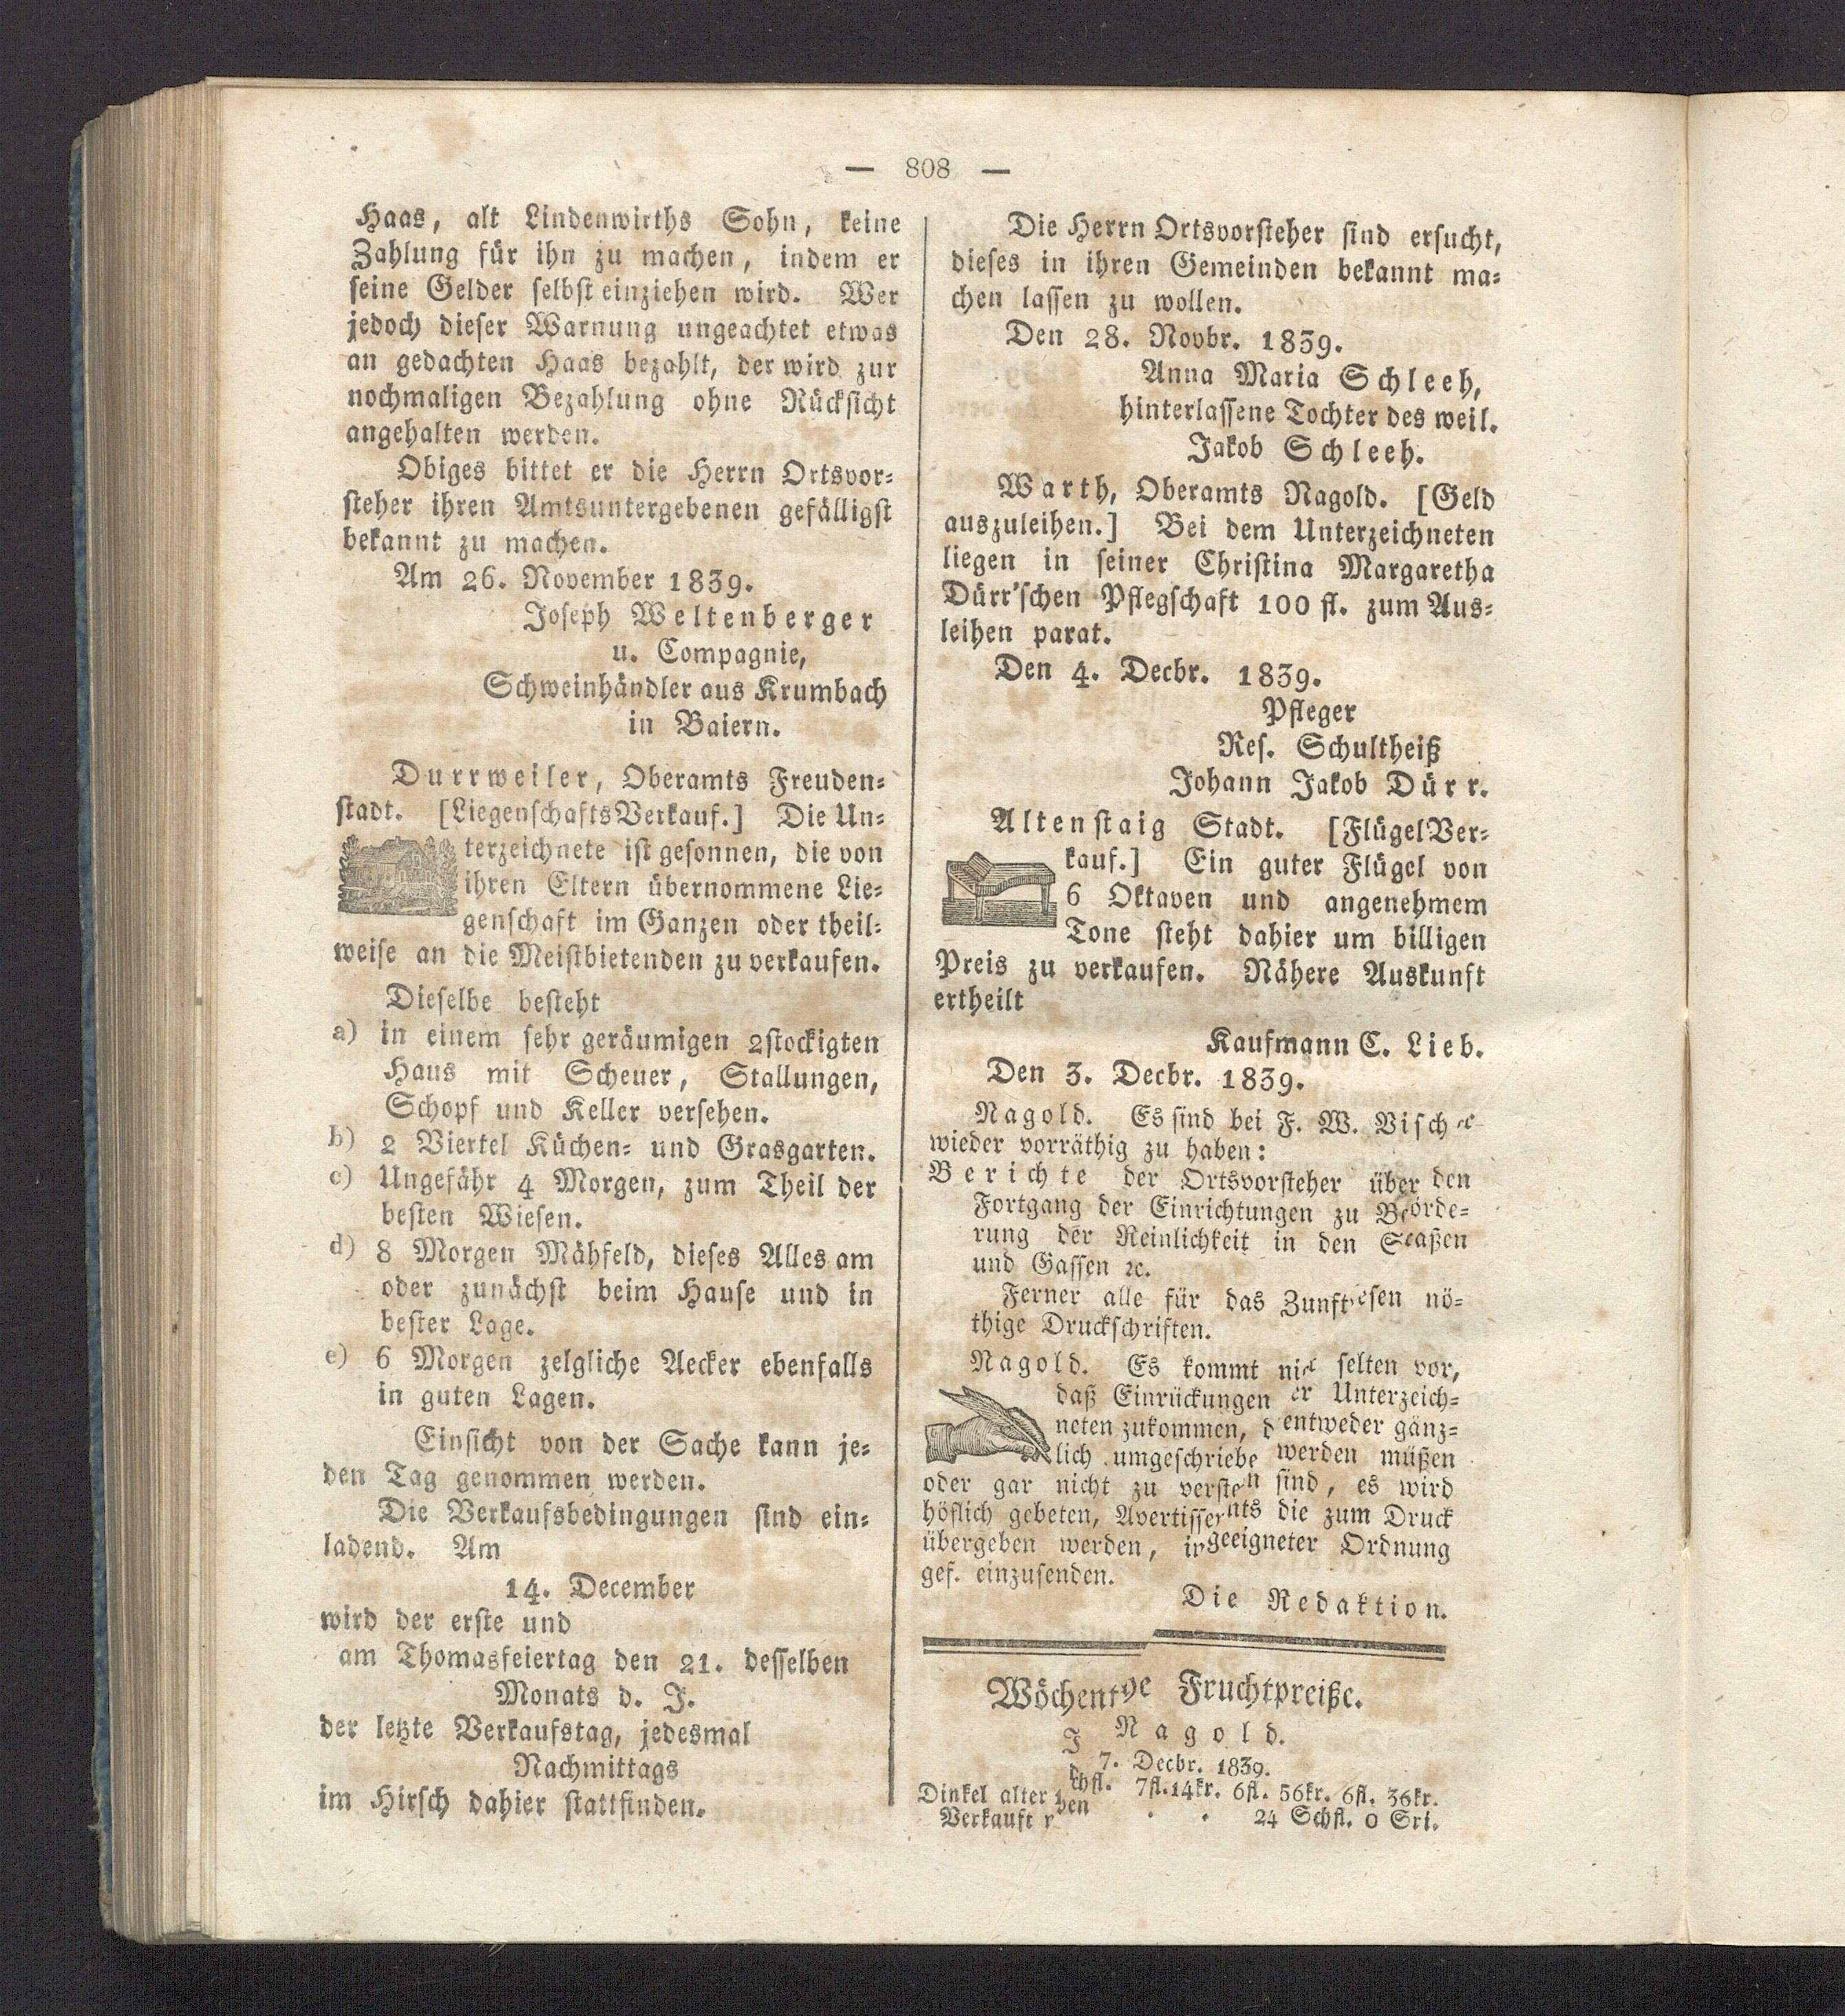 — 808 —
Haas, alt Lindenwirths Sohn, keine
Zahlung für ihn zu machen, indem er
seine Gelder selbst einziehen wird. Wer
jedoch dieser Warnung ungeachtet etwas
an gedachten Haas bezahlt, der wird zur
nochmaligen Bezahlung ohne Rücksicht
angehalten werden.
Obiges bittet er die Herrn Ortsvor-
steher ihren Amtsuntergebenen gefälligst
bekannt zu machen.
Am 26. November 1839.
Joseph Weltenberger
u. Compagnie,
Schweinhändler aus Krumbach
in Baiern.
Durrweiler, Oberamts Freuden-
stadt. [LiegenschaftsVerkauf.] Die Un-
terzeichnete ist gesonnen, die von
ihren Eltern übernommene Lie-
genschaft im Ganzen oder theil-
weise an die Meistbietenden zu verkaufen.
Dieselbe besteht
a) in einem sehr geräumigen 2stockigten
Haus mit Scheuer, Stallungen,
Schopf und Keller versehen.
b) 2 Viertel Küchen- und Grasgarten.
c) Ungefähr 4 Morgen, zum Theil der
besten Wiesen.
d) 8 Morgen Mähfeld, dieses Alles am
oder zunächst beim Hause und in
bester Lage.
e) 6 Morgen zelgliche Aecker ebenfalls
in guten Lagen.
Einsicht von der Sache kann je-
den Tag genommen werden.
Die Verkaufsbedingungen sind ein-
ladend. Am
14. December
wird der erste und
am Thomasfeiertag den 21. desselben
Monats d. J.
der letzte Verkaufstag, jedesmal
Nachmittags
im Hirsch dahier stattfinden.
Die Herrn Ortsvorsteher sind ersucht,
dieses in ihren Gemeinden bekannt ma-
chen lassen zu wollen.
Den 28. Novbr. 1839.
Anna Maria Schleeh,
hinterlassene Tochter des weil.
Jakob Schleeh.
Warth, Oberamts Nagold. [Geld
auszuleihen.] Bei dem Unterzeichneten
liegen in seiner Christina Margaretha
Dürr'schen Pflegschaft 100 fl. zum Aus-
leihen parat.
Den 4. Decbr. 1839.
Pfleger
Res. Schultheiß
Johann Jakob Dürr.
Altenstaig Stadt. [FlügelVer-
kauf.] Ein guter Flügel von
6 Oktaven und angenehmem
Tone steht dahier um billigen
Preis zu verkaufen. Nähere Auskunft
ertheilt
Kaufmann C. Lieb.
Den 3. Decbr. 1839.
Nagold. Es sind bei F. W. Vischer
wieder vorräthig zu haben:
Berichte der Ortsvorsteher über den
Fortgang der Einrichtungen zu Beörde-
rung der Reinlichkeit in den Seaßen
und Gassen ꝛc.
Ferner alle für das Zunftesen nö-
thige Druckschriften.
Nagold. Es kommt nict selten vor,
daß Einrückungen er Unterzeich-
neten zukommen, d entweder gänz-
lich umgeschriebe werden müßen
oder gar nicht zu versten sind, es wird
höflich gebeten, Avertissemts die zum Druck
übergeben werden, in geeigneter Ordnung
gef. einzusenden.
Die Redaktion.
Wöchentge Fruchtpreiße.
J Nagold.
d 7. Decbr. 1839.
Dinkel alter 1 chfl. 7fl. 14kr. 6fl. 56kr. 6fl. 36kr.
Verkauft r den . . 24 Schfl. 0 Sri.